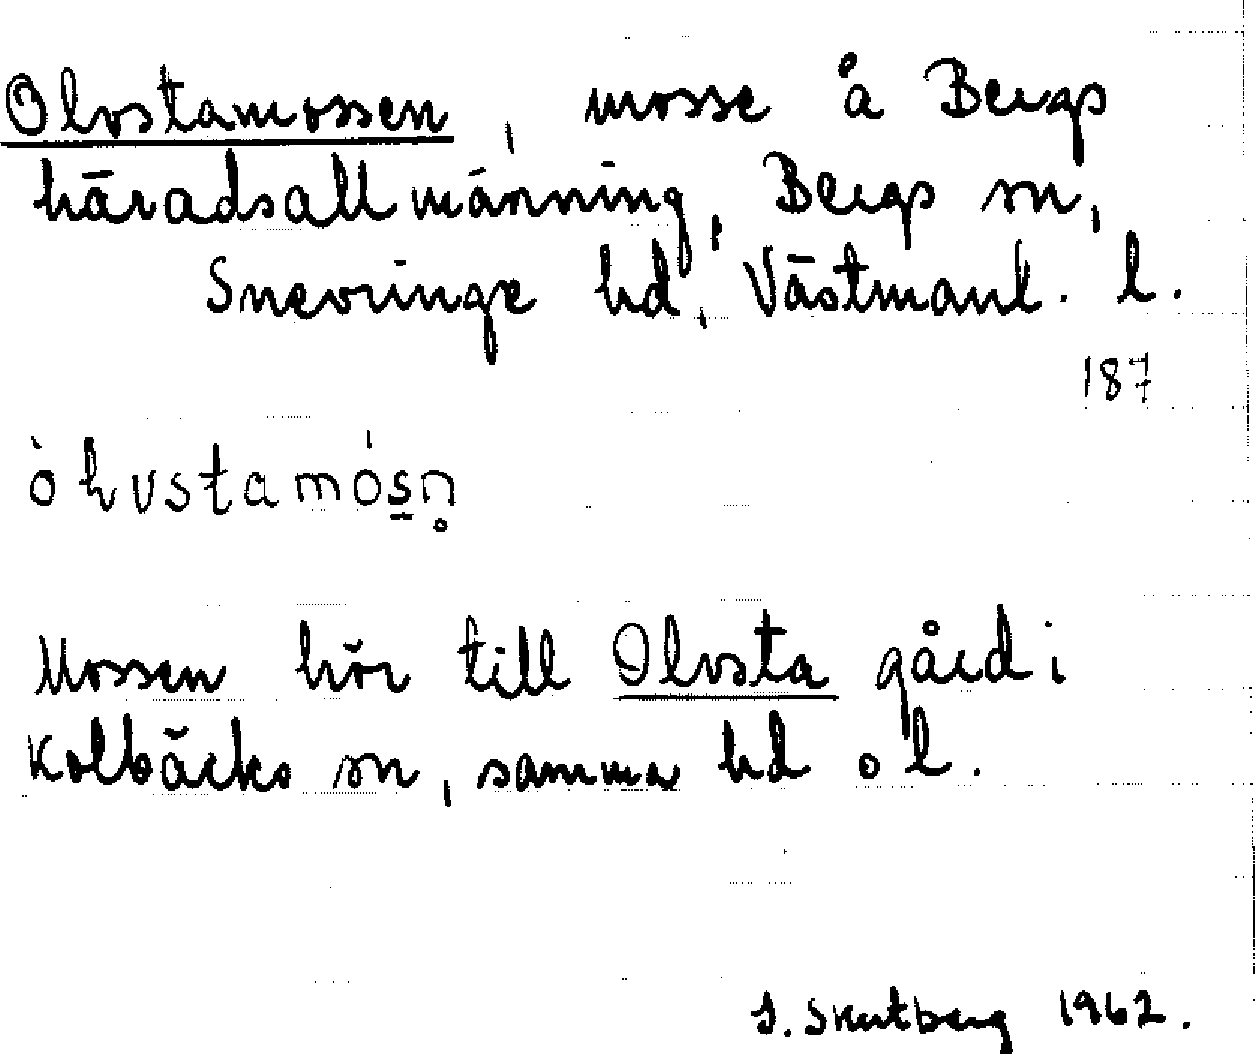 Olvstamossen, mosse å Bergs
häradsallmänning, Bergs sn,
Snevringe hd, Västmanl. l.
187
òhvstamósn̥
Mossen hör till Olvsta gård i
Kolbäcks sn, samma hd o l.
S. Skutberg 1962.